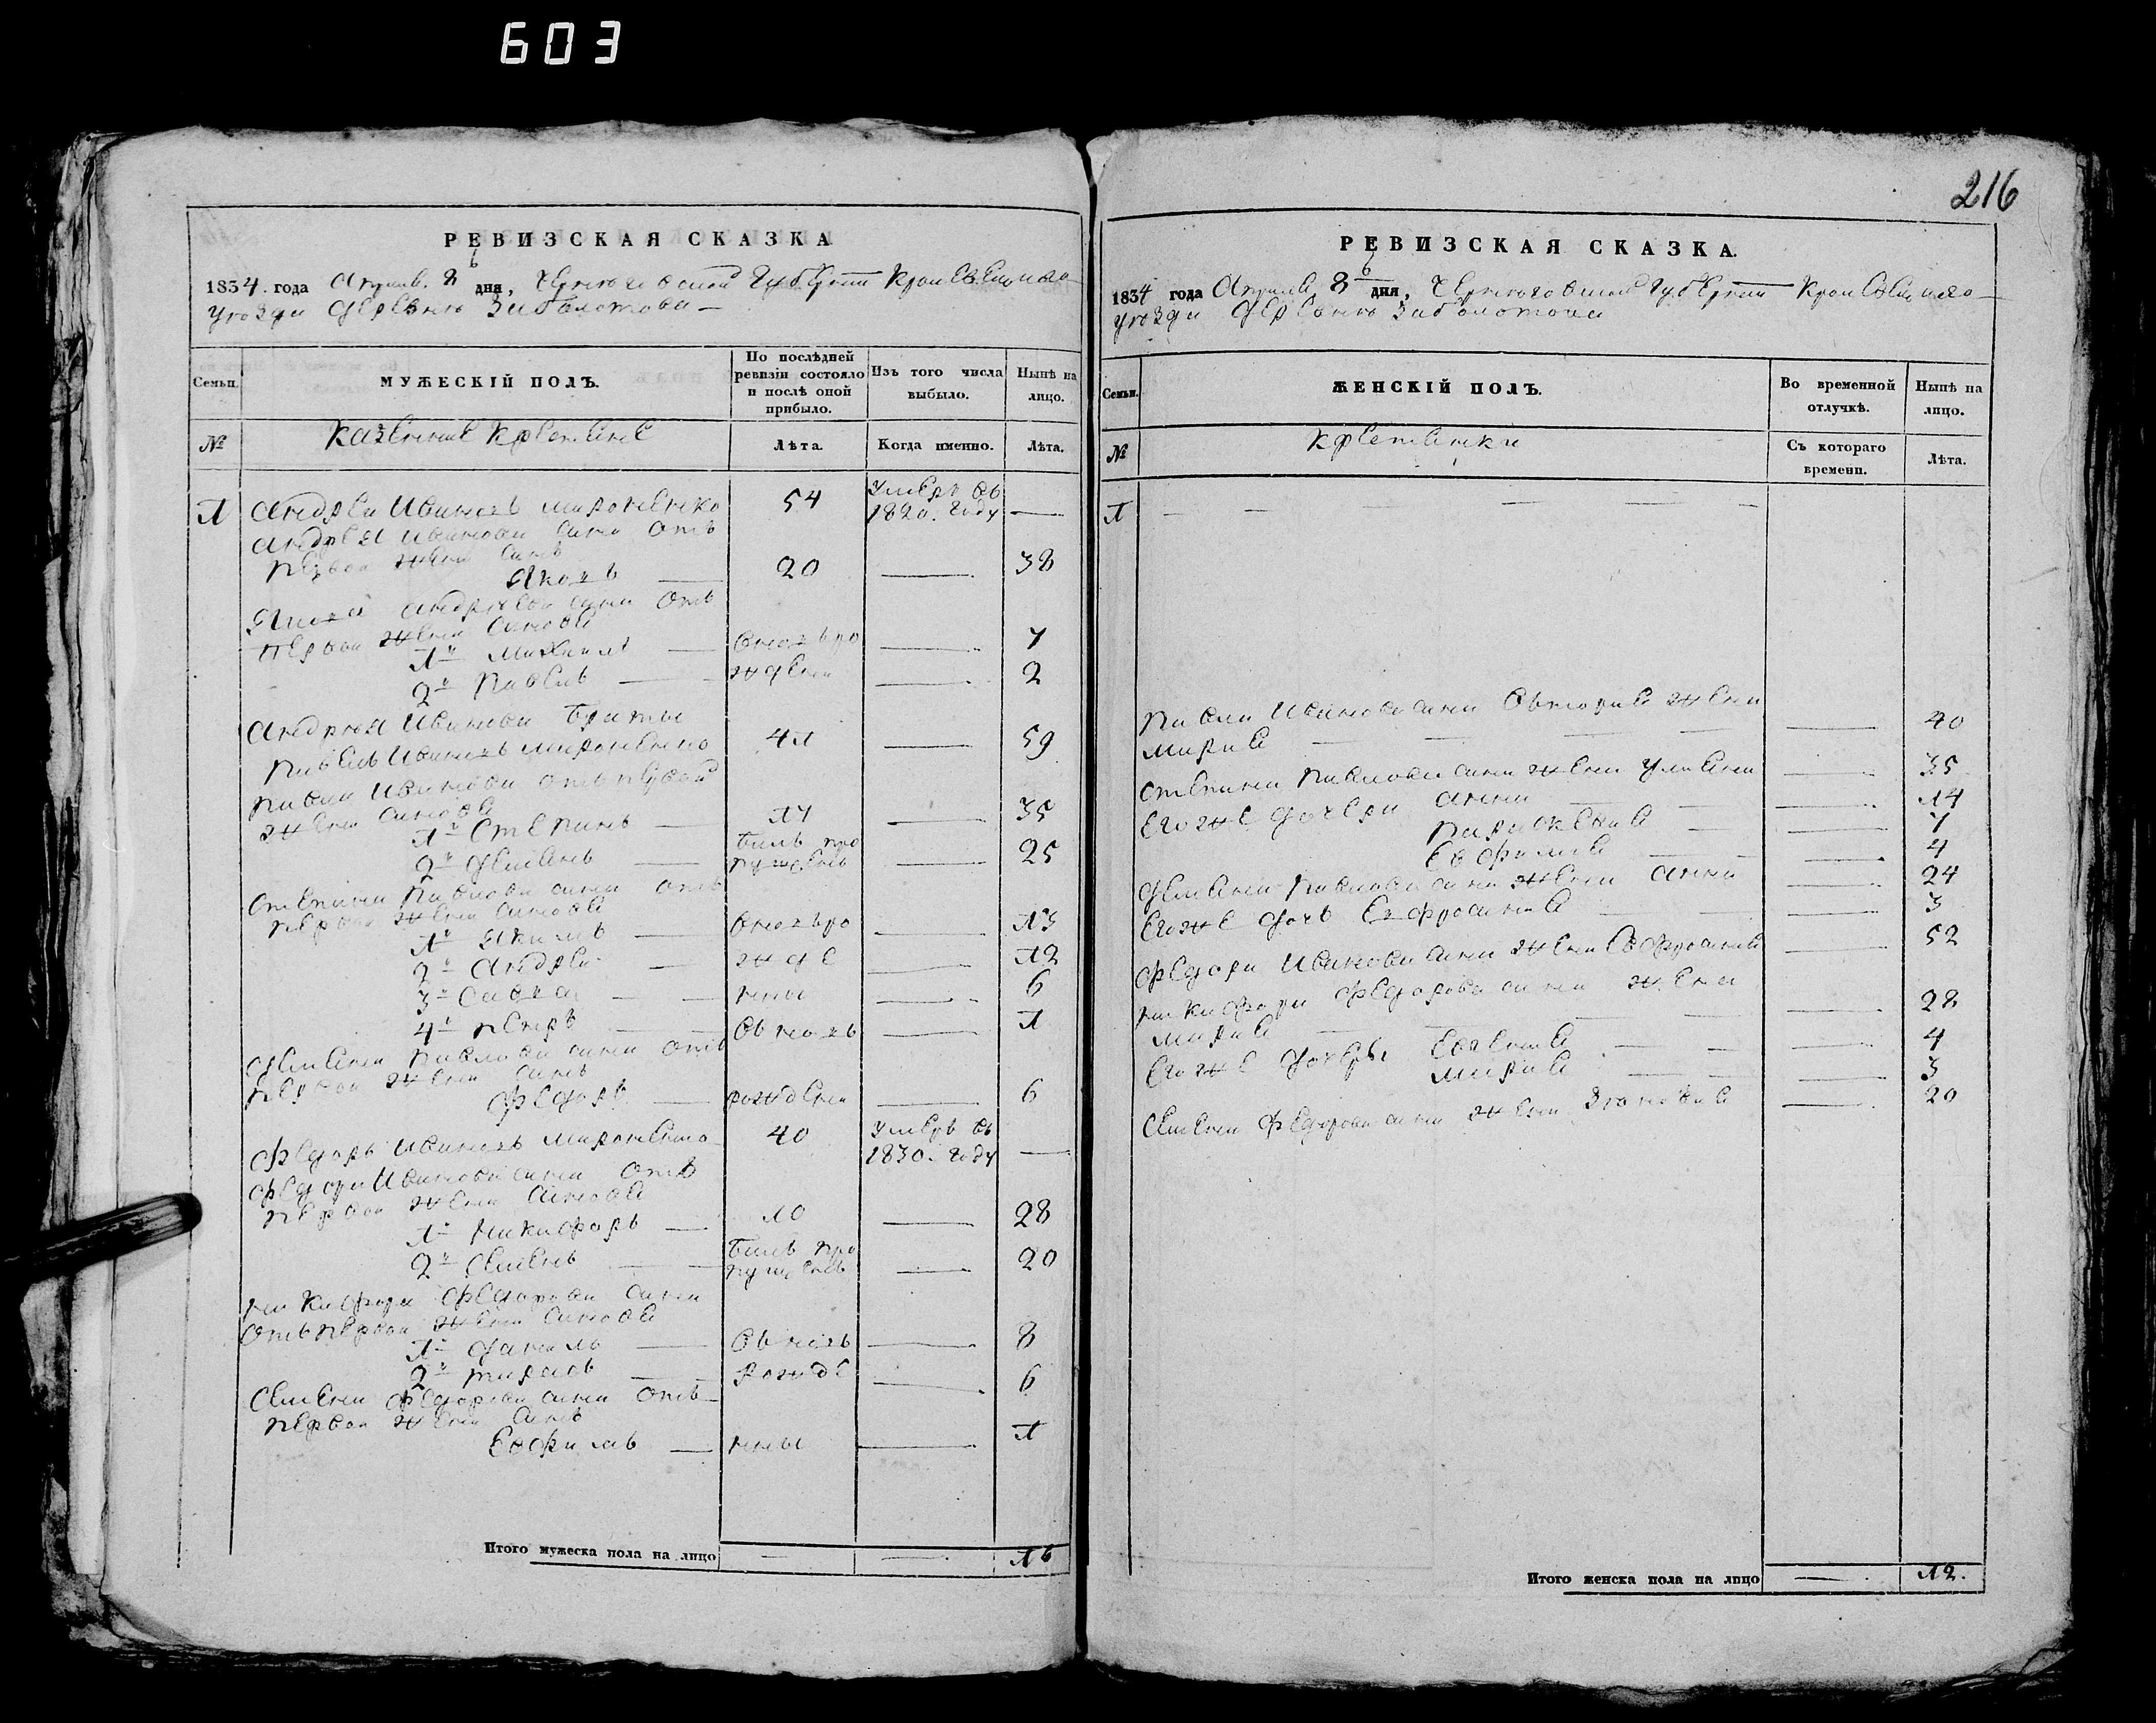 603
216
РЕВИЗСКАЯ СКАЗКА
1834 года Априля 8 дня, Черниговской Губернии Кролевецкаго
уезда деревни Заболотова
Семьи.
МУЖЕСКІЙ ПОЛЪ.
По послѣдней ревизіи состояло и послѣ оной прибыло.
Изъ того числа выбыло.
Нынѣ на лицо.
№
Казенние Крестяне
Лѣта.
Когда именно.
Лѣта.
1 Андрей Ивановъ Мироненко 54 Умеръ въ 1820. году —
Андрея Иванова сина отъ
первой жени синъ
Яковъ — 20 — 38
Якова Андреева сина отъ
первой жени синове
1й Михаилъ — вновь ро — 7
2й Павелъ — ждени — 2
Андрея Иванова братъя
Павелъ Ивановъ Мироненко 41 — 59
Павла Иванова отъ первой
жени синове
1й Степанъ — 17 — 35
2й Демянъ — билъ пропущенъ — 25
Степана Павлова сина отъ
первой жени синове
1й Якимъ — вновь ро — 13
2й Андрей — жде — 12
3й Савва — нны — 6
4й Петръ — вновь — 1
Демяна Павлова сина отъ
первой жени синъ
Федоръ — рождени — 6
Федоръ Ивановъ Мироненко 40 Умеръ въ 1830. году —
Федора Иванова сина отъ
первой жени синове
1й Никифоръ — 10 — 28
2й Семенъ — билъ пропущенъ — 20
Никифора Федорова сина
отъ первой жени синове
1й Данилъ — вновь — 8
2й Тарасъ — рожде — 6
Семена Федорова сина отъ
первой жени синъ
Евфимъ — нны — 1
Итого мужеска пола на лицо — — 16
РЕВИЗСКАЯ СКАЗКА.
1834 года Априля 8 дня, Черниговской Губернии Кролевецкаго
уезда деревни Заболотова
Семьи.
ЖЕНСКІЙ ПОЛЪ.
Во временной отлучкѣ.
Нынѣ на лицо.
№
Крестянки
Съ котораго времени.
Лѣта.
1 — — — — —
Павла Иванова сина вторая жена
Мария — — — 40
Степана Павлова сина жена Улияна — 35
Его же дочери Анна — — 14
Параскевия — — 7
Евфимия — — 4
Демяна Павлова сина жена Анна — 24
Его же дочь Евфросиния — — 3
Федора Иванова сина жена Евфросиния — 52
Никифора Федорова сина жена
Мария — — — 28
Его же дочеры Евгения — — 4
Мария — — 3
Семена Федорова сина жена Зиновия — 20
Итого женска пола на лицо — 12.